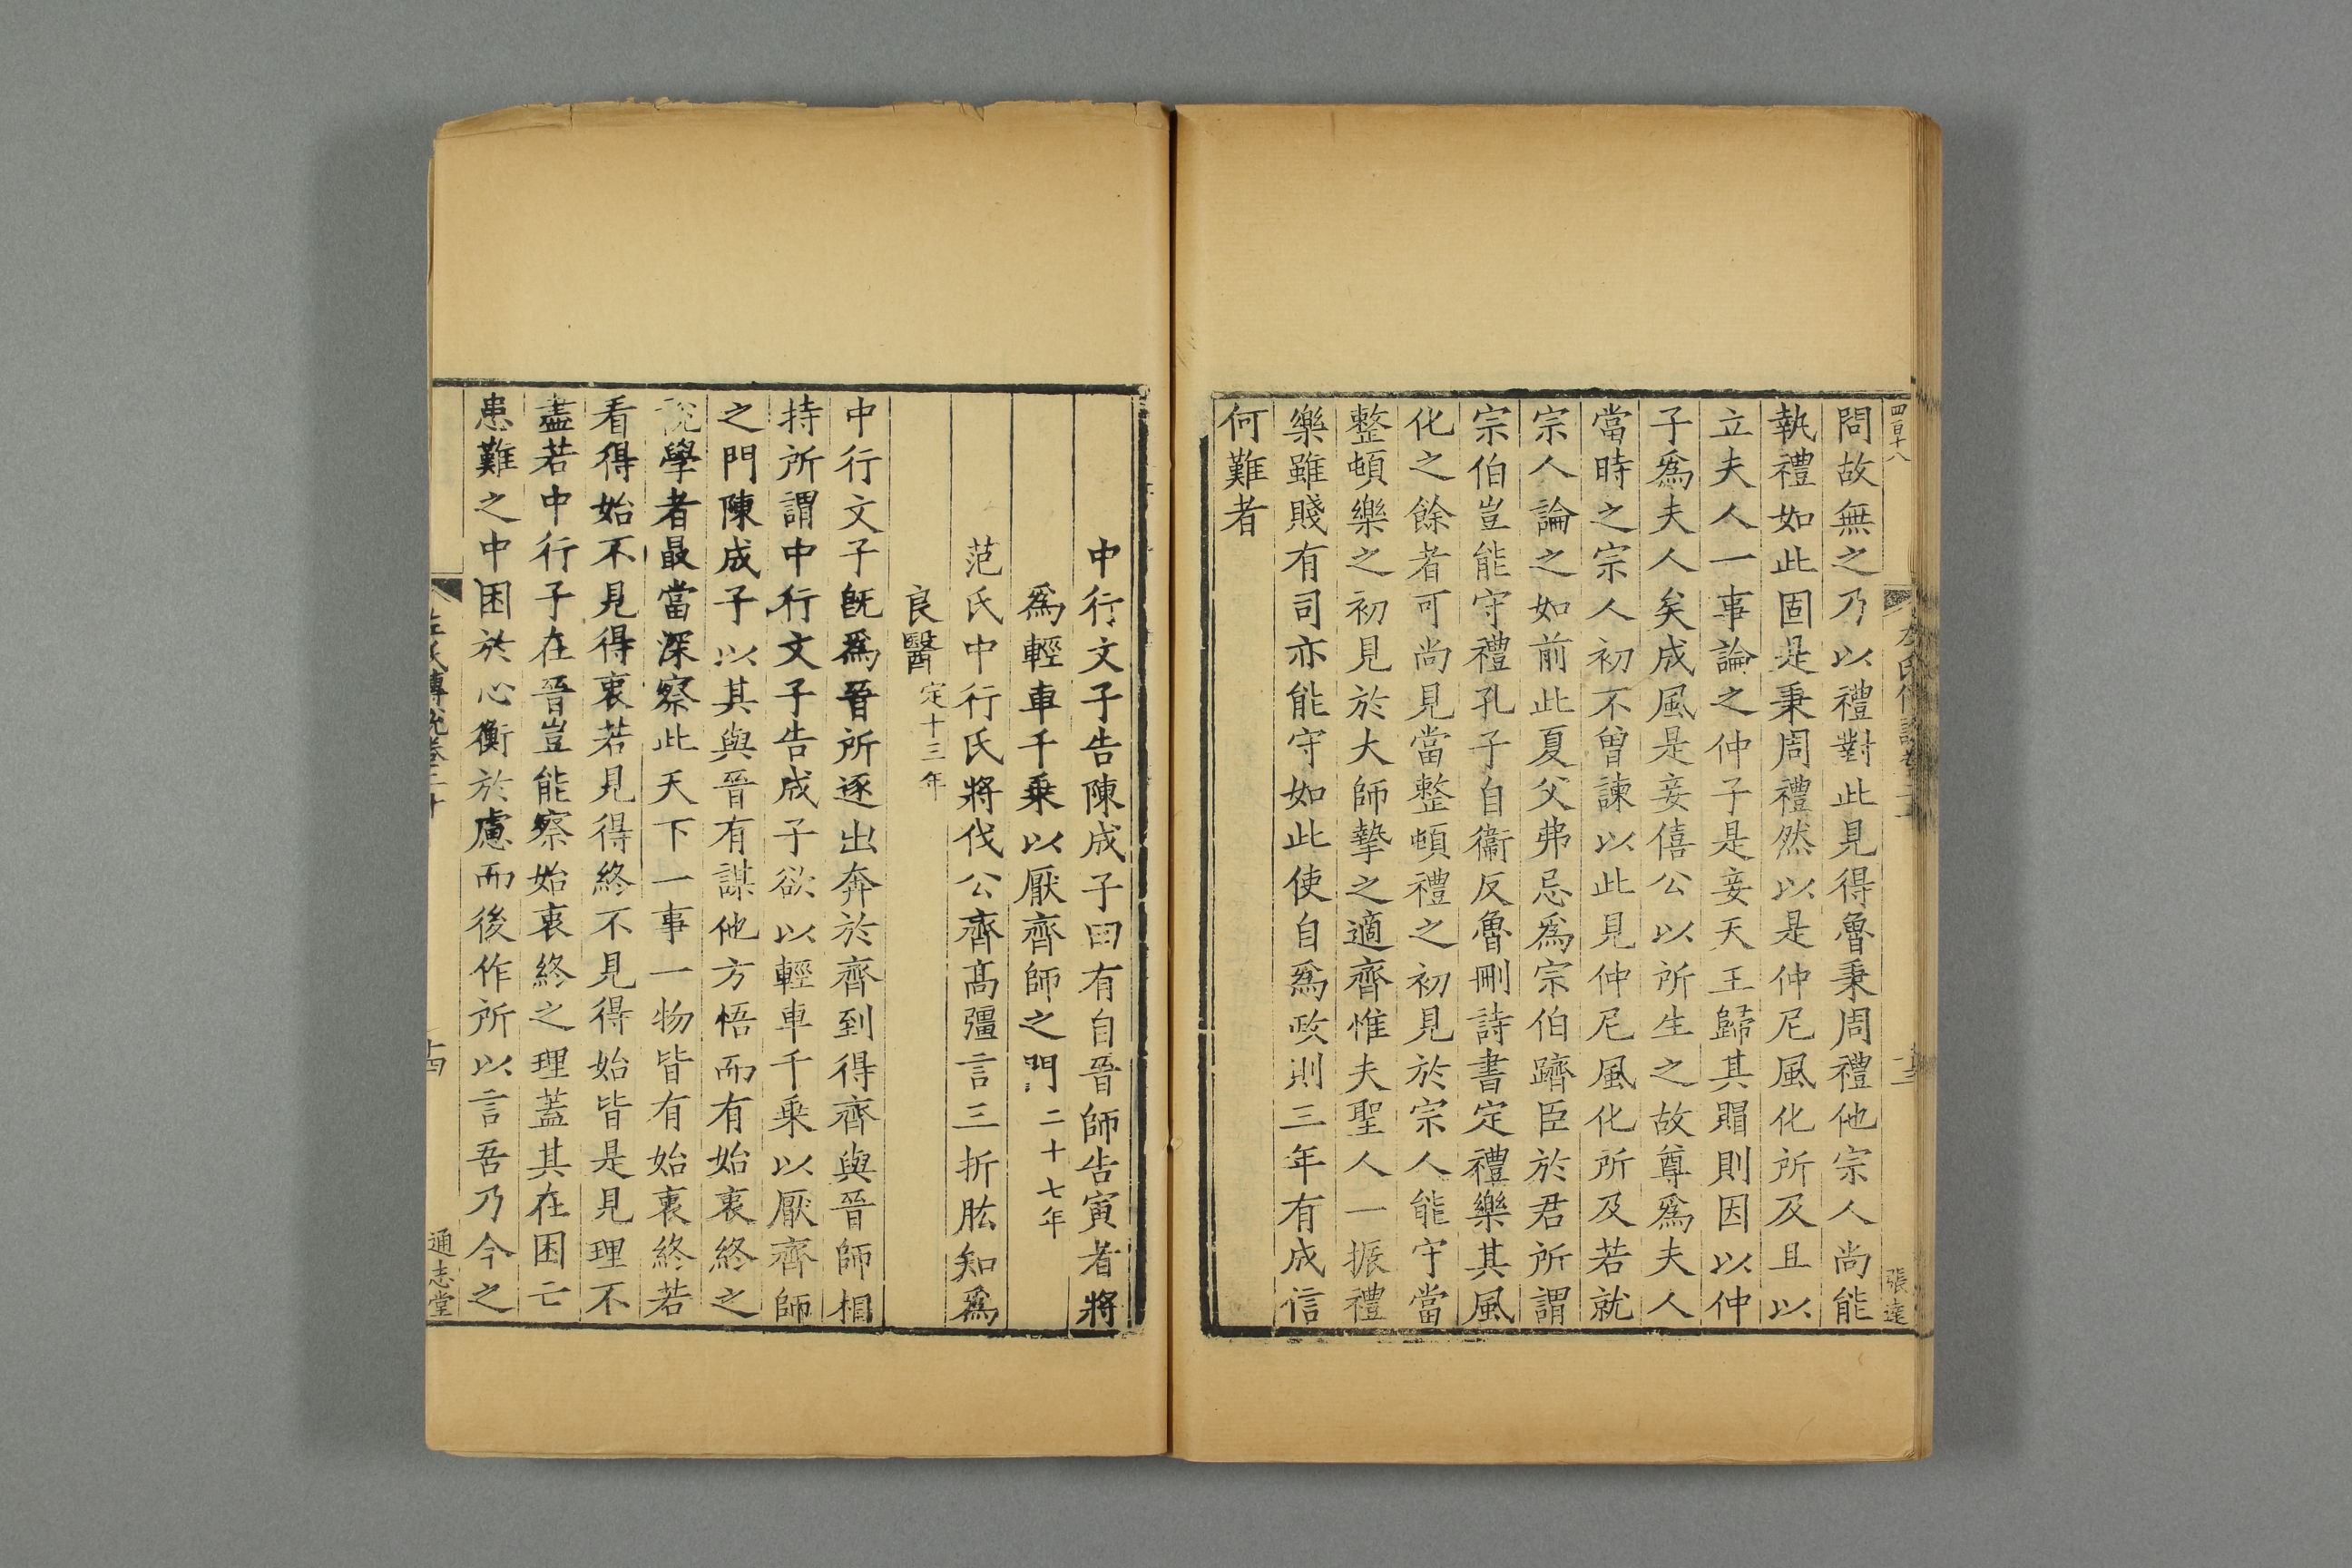 四百十八
張達
問故無之乃以禮對此見得魯秉周禮他宗人尚能
執禮如此固是秉周禮然以是仲尼風化所及且以
立夫人一事論之仲子是妾天王歸其賵則因以仲
子爲夫人矣成風是妾僖公以所生之故尊爲夫人
當時之宗人初不曾諫以此見仲尼風化所及若就
宗人論之如前此夏父弗忌爲宗伯躋臣於君所謂
宗伯豈能守禮孔子自衞反魯刪詩書定禮樂其風
化之餘者可尚見當整頓禮之初見於宗人能守當
整頓樂之初見於大師摯之適齊惟夫聖人一振禮
樂雖賤有司亦能守如此使自爲政則三年有成信
何難者
中行文子告陳成子曰有自晉師告寅者將
爲輕車千乗以厭齊師之門二十七年
范氏中行氏將伐公齊髙彊言三折肱知爲
良醫定十三年
中行文子旣爲晉所逐出奔於齊到得齊與晉師相
持所謂中行文子告成子欲以輕車千乗以厭齊師
之門陳成子以其與晉有謀他方悟而有始衷終之
說學者最當深察此天下一事一物皆有始衷終若
看得始不見得衷若見得終不見得始皆是見理不
盡若中行子在晉豈能察始衷終之理蓋其在困亡
患難之中困於心衡於慮而後作所以言吾乃今之
左氏傳說卷二十
十四
通志堂